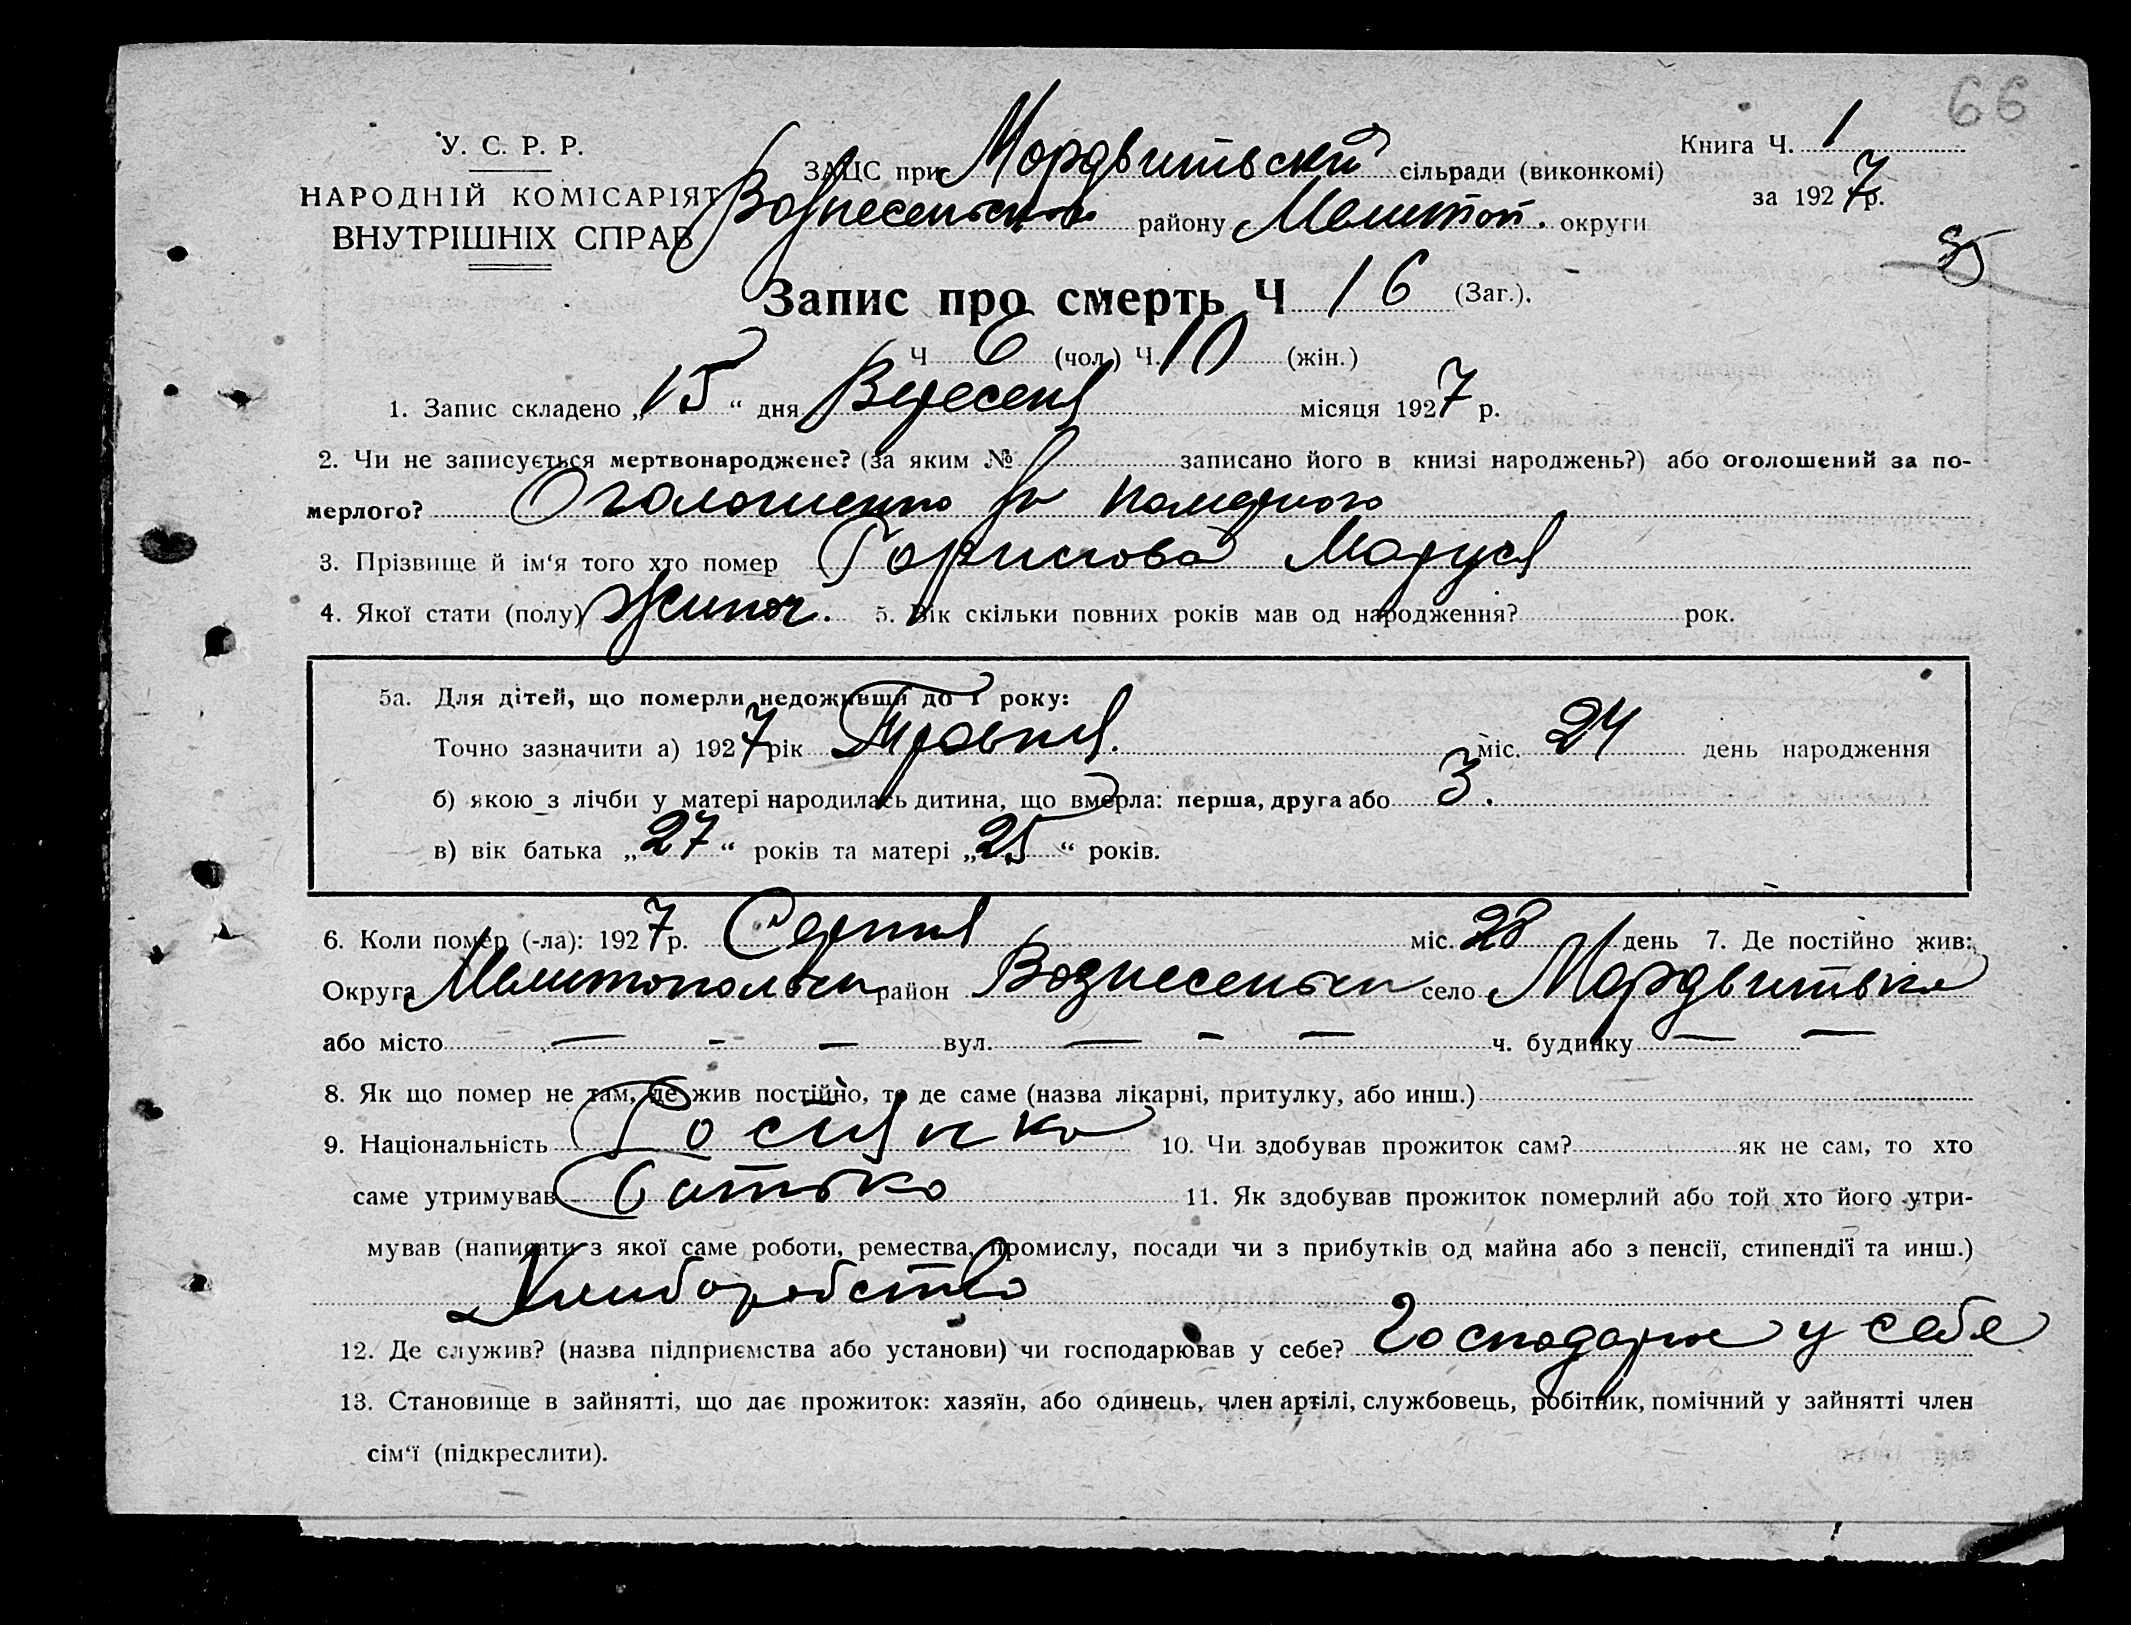 66
У. С. Р. Р.
НАРОДНІЙ КОМІСАРІЯТ
ВНУТРІШНІХ СПРАВ
ЗАЦС при Мордвитьскій сільради (виконкомі)
Книга Ч. 1
за 1927 р.
Вознесенськ району Мелитоп. округи
Запис про смерть Ч 16 (Заг.).
Ч 6 (чол.) Ч. 10 (жін.)
1. Запис складено „15“ дня Вересеня місяця 1927 р.
2. Чи не записується мертвонароджене? (за яким № записано його в книзі народжень?) або оголошений за по-
мерлого? Оголошенно за померлого
3. Прізвище й ім‘я того хто помер Маруся
4. Якої стати (полу) Жиноч. 5. Вік скільки повних років мав од народження? рок.
5а. Для дітей, що померли недоживши до 1 року:
Точно зазначити а) 1927 рік Травня. міс. 24 день народження
б) якою з лічби у матері народилась дитина, що вмерла: перша, друга або 3.
в) вік батька „27“ років та матері „25“ років.
6. Коли помер (-ла): 1927 р. Серпня міс. 28 день 7. Де постійно жив:
Округа Мелитопольськ район Вознесенськ село Мордвитька
або місто — - — вул. — - — ч. будинку — —
8. Як що помер не там, де жив постійно, то де саме (назва лікарні, притулку, або инш.)
9. Національність Росиянка 10. Чи здобував прожиток сам? як не сам, то хто
саме утримував Батько 11. Як здобував прожиток померлий або той хто його утри-
мував (написати з якої саме роботи, ремества, промислу, посади чи з прибутків од майна або з пенсії, стипендії та инш.)
Хлиборобство
12. Де служив? (назва підприємства або установи) чи господарював у себе? Господарює у себе
13. Становище в зайнятті, що дає прожиток: хазяїн, або одинець, член артілі, службовець, робітник, помічний у зайнятті член
сім‘ї (підкреслити).